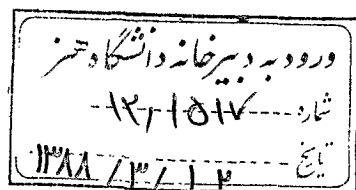 ورود به دبیرخانه دانشگاه هنر
شماره: ۱۲/۱۵۱۷
تاریخ ۱۳۸۸/۳/۱۲